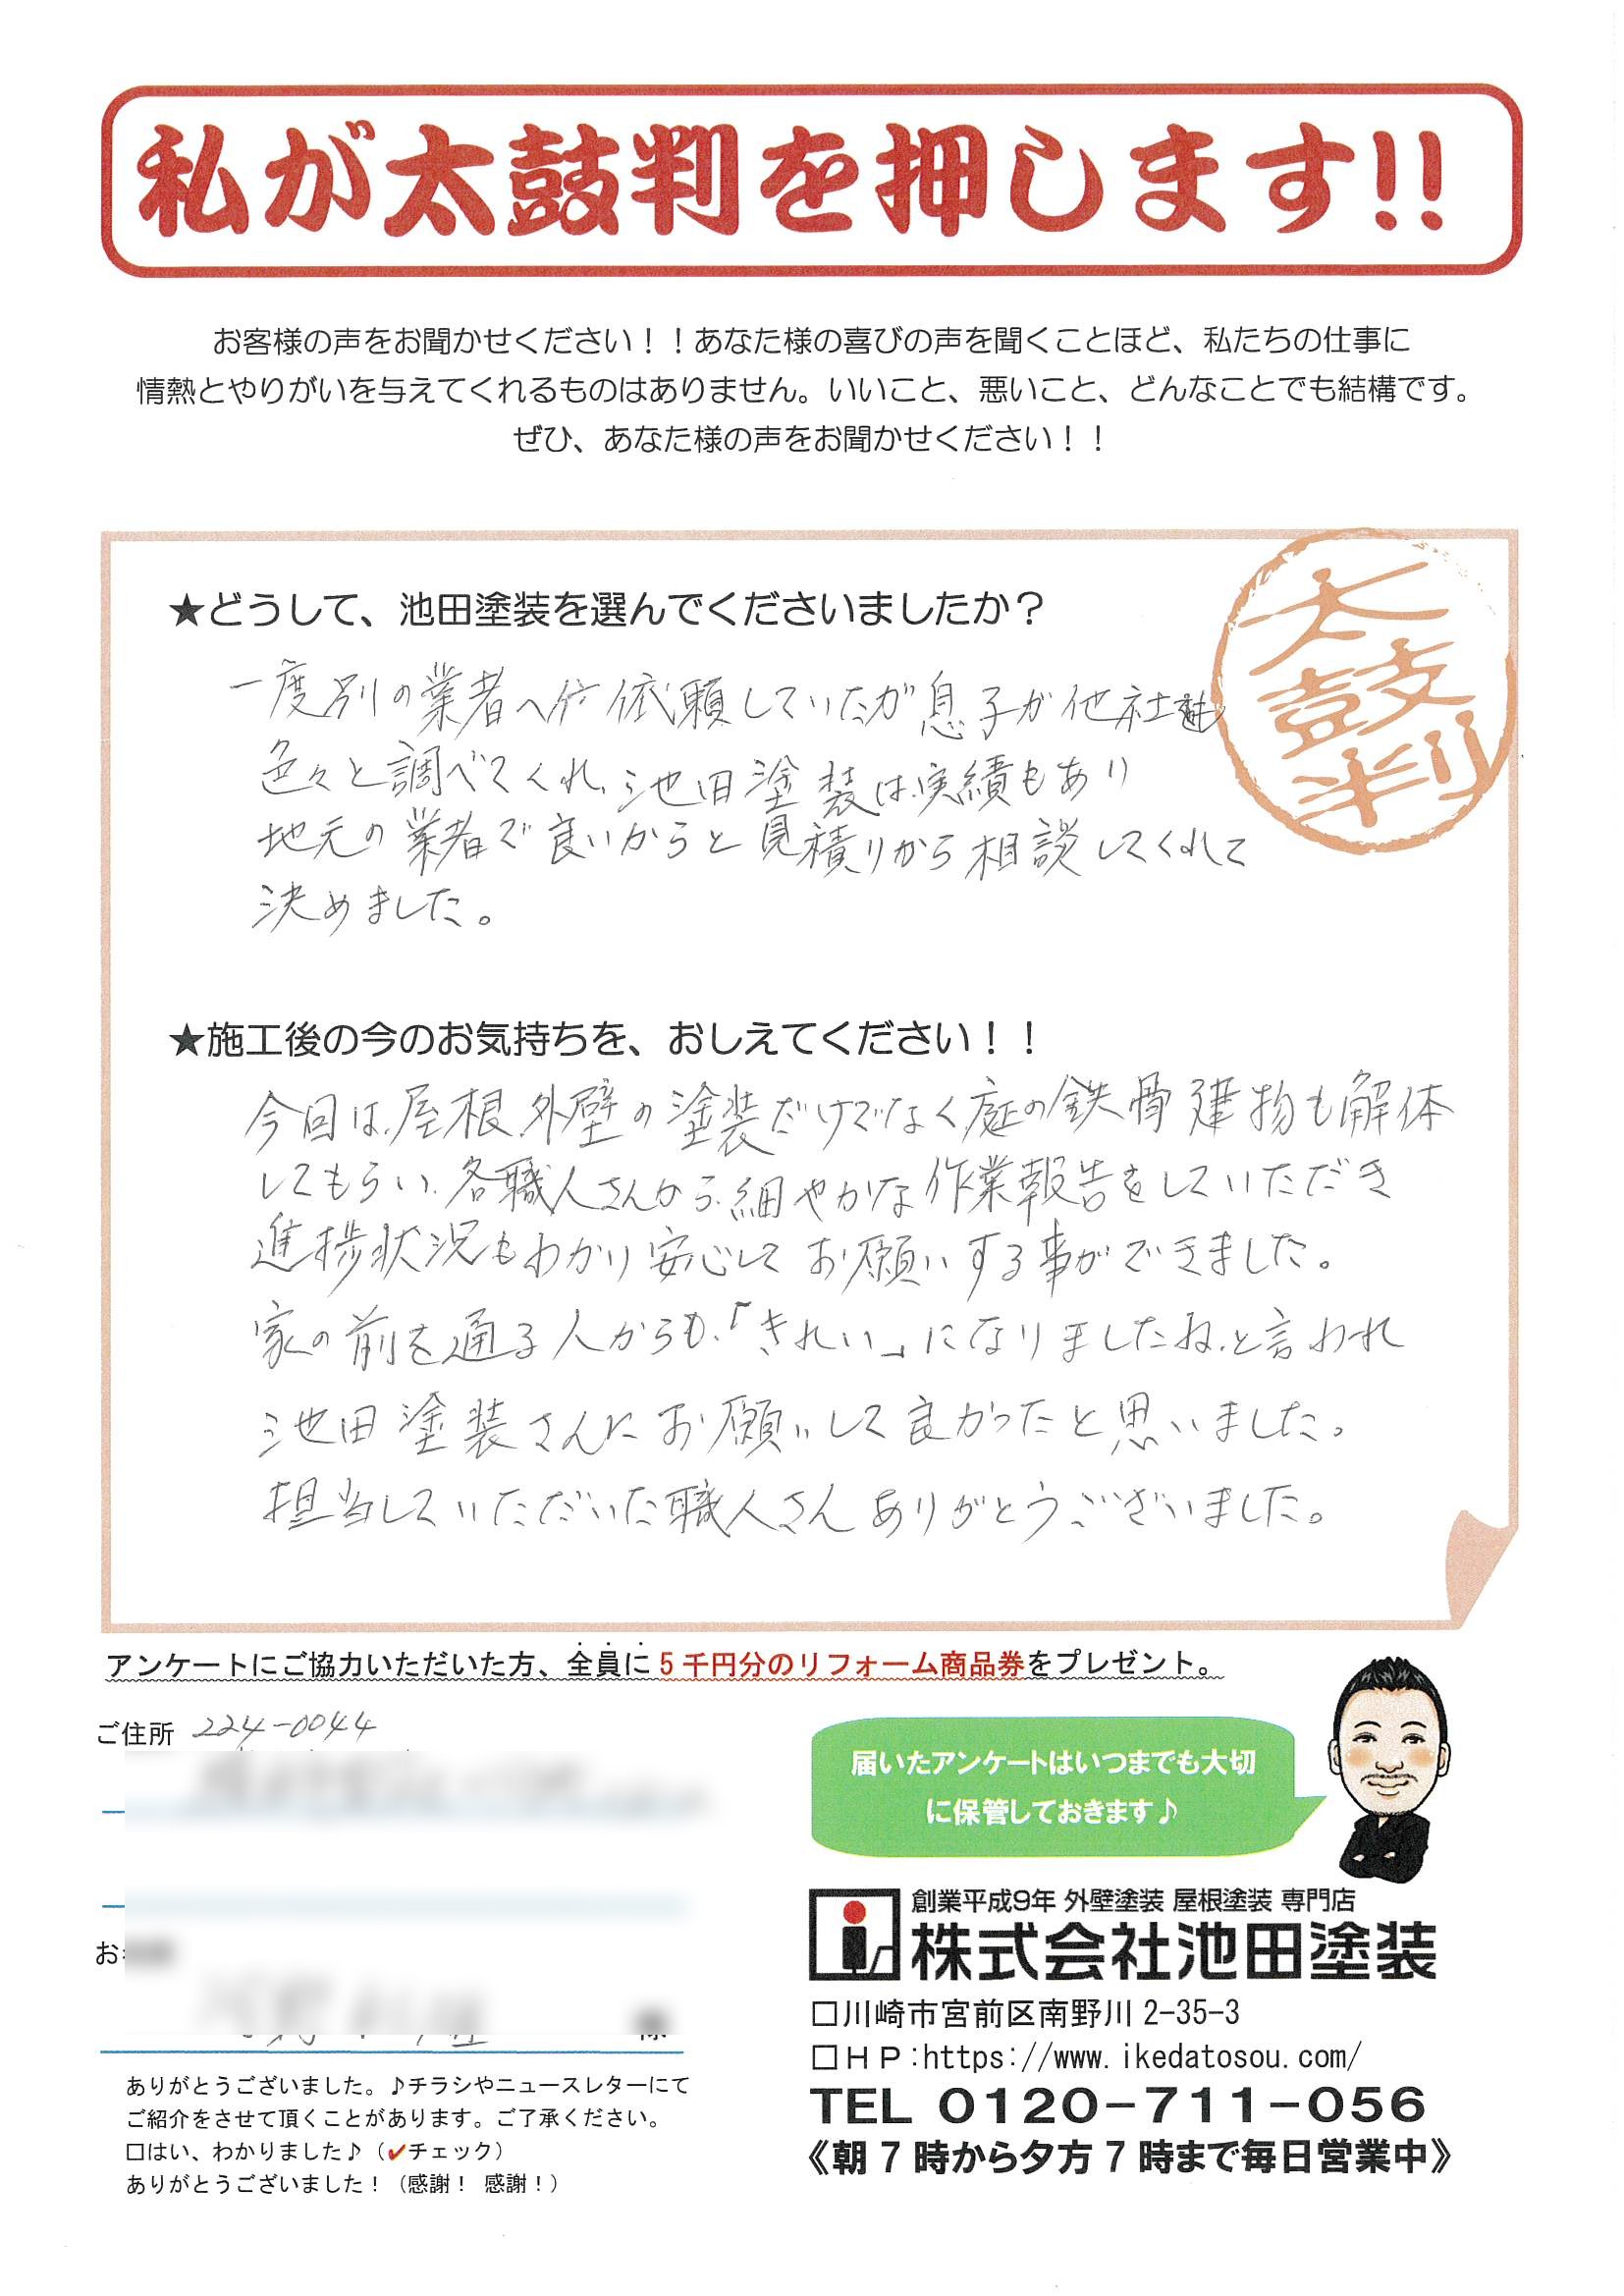 私が太鼓判を押します!!
お客様の声をお聞かせください！！あなた様の喜びの声を聞くことほど、私たちの仕事に
情熱とやりがいを与えてくれるものはありません。いいこと、悪いこと、どんなことでも結構です。
ぜひ、あなた様の声をお聞かせください！！
太鼓判
★どうして、池田塗装を選んでくださいましたか？
一度別の業者へ依頼していたが息子が他社も
色々と調べてくれ、池田塗装は、実績もあり
地元の業者で良いからと見積りから相談してくれて
決めました。
★施工後の今のお気持ちを、おしえてください！！
今回は、屋根、外壁の塗装だけでなく庭の鉄骨建物も解体
してもらい、各職人さんから、細やかな作業報告をしていただき
進捗状況もわかり安心してお願いする事ができました。
家の前を通る人からも、「きれい」になりましたね、と言われ
池田塗装さんにお願いして良かったと思いました。
担当していただいた職人さんありがとうございました。
アンケートにご協力いただいた方、全員に5千円分のリフォーム商品券をプレゼント。
ご住所 224-0044
届いたアンケートはいつまでも大切
に保管しておきます♪
お
様
創業平成9年 外壁塗装 屋根塗装 専門店
株式会社池田塗装
□川崎市宮前区南野川2-35-3
□ＨＰ:https://www.ikedatosou.com/
TEL 0120-711-056
《朝7時から夕方7時まで毎日営業中》
ありがとうございました。♪チラシやニュースレターにて
ご紹介をさせて頂くことがあります。ご了承ください。
□はい、わかりました♪（✔チェック）
ありがとうございました！（感謝！ 感謝！）